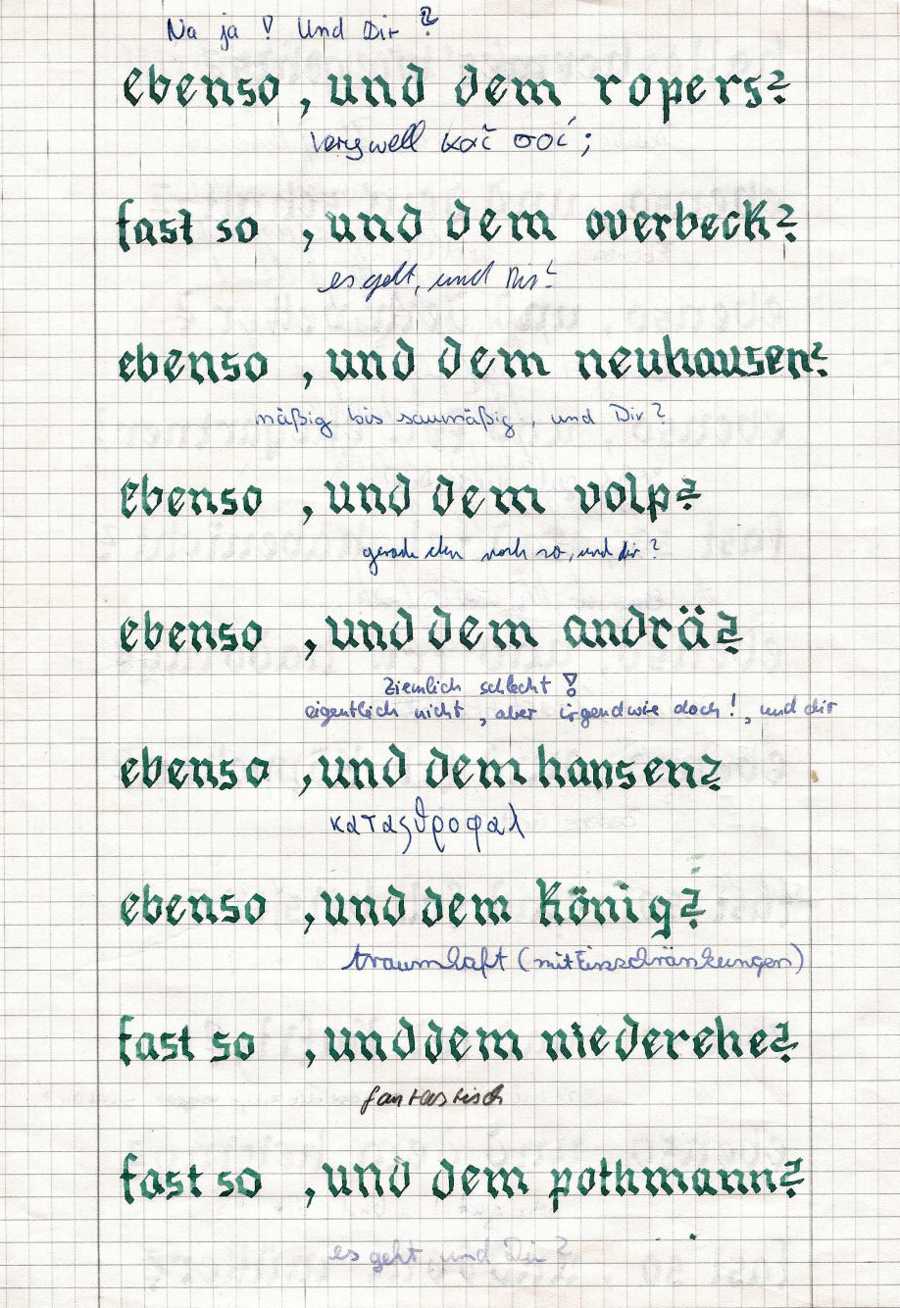 Na ja! Und Dir?
ebenso, und dem ropers?
very well καὶ σοί;
fast so, und dem overbeck?
es geht, und Dir?
ebenso, und dem neuhausen?
mäßig bis saumäßig, und Dir?
ebenso, und dem volp?
gerade eben noch so, und dir?
ebenso, und dem andrä?
Ziemlich schlecht!
eigentlich nicht, aber irgendwie doch!, und dir
ebenso, und dem hansen?
καταςθροφαλ
ebenso, und dem könig?
traumhaft (mit Einschränkungen)
fast so, und dem niederehe?
fantastisch
fast so, und dem pothmann?
es geht und Dir?